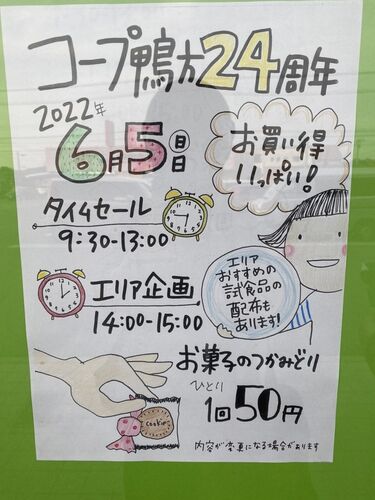 コープ鴨方24周年
2022年
6月5日
日
お買い得
いっぱい!
タイムセール
9:30-13:00
エリア企画
14:00-15:00
エリア
おすすめの
試食品の
配布も
あります!
お菓子のつかみどり
ひとり
1回50円
cookie
内容が変更になる場合があります